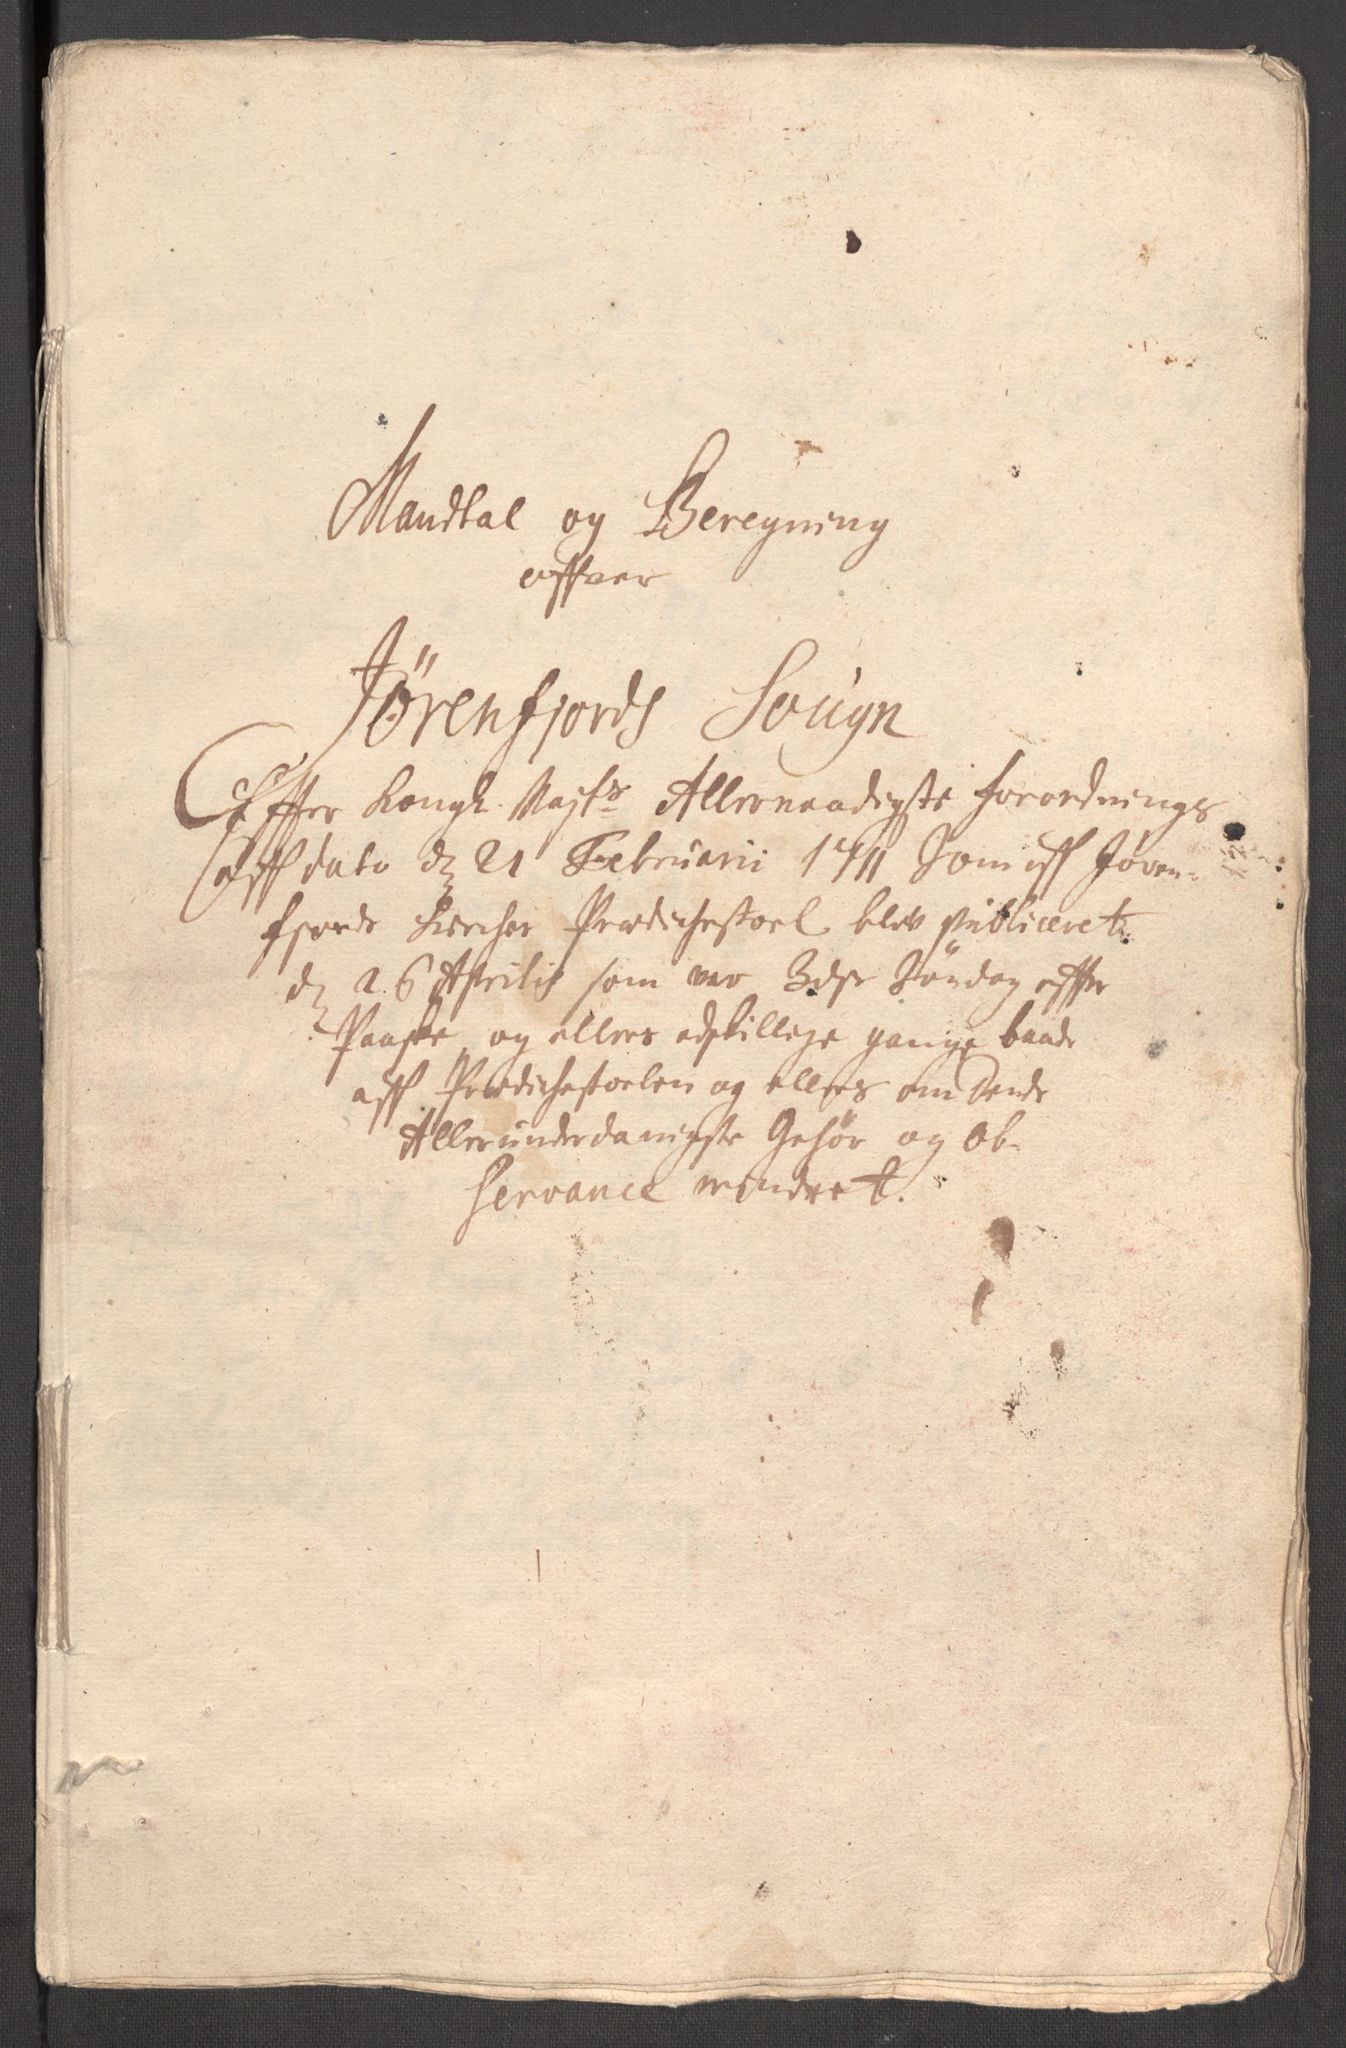 Mandtal og Beregning
offver
Jörenfjords Sougn
Effter Kongl. Majts Allernaadigste forordnings
aff dato dz 21 Februarii 1711 Som aff Jören-
fjords Kirches Prædichestoel blev publiceret
dz 26 Aprilis som var 3die Söndag effter
Paaske og ellers adskillige gange baade
aff Prædichestoelen og ellers om dends
Allerunderdanigste Gehör og Ob-
servance mindret.